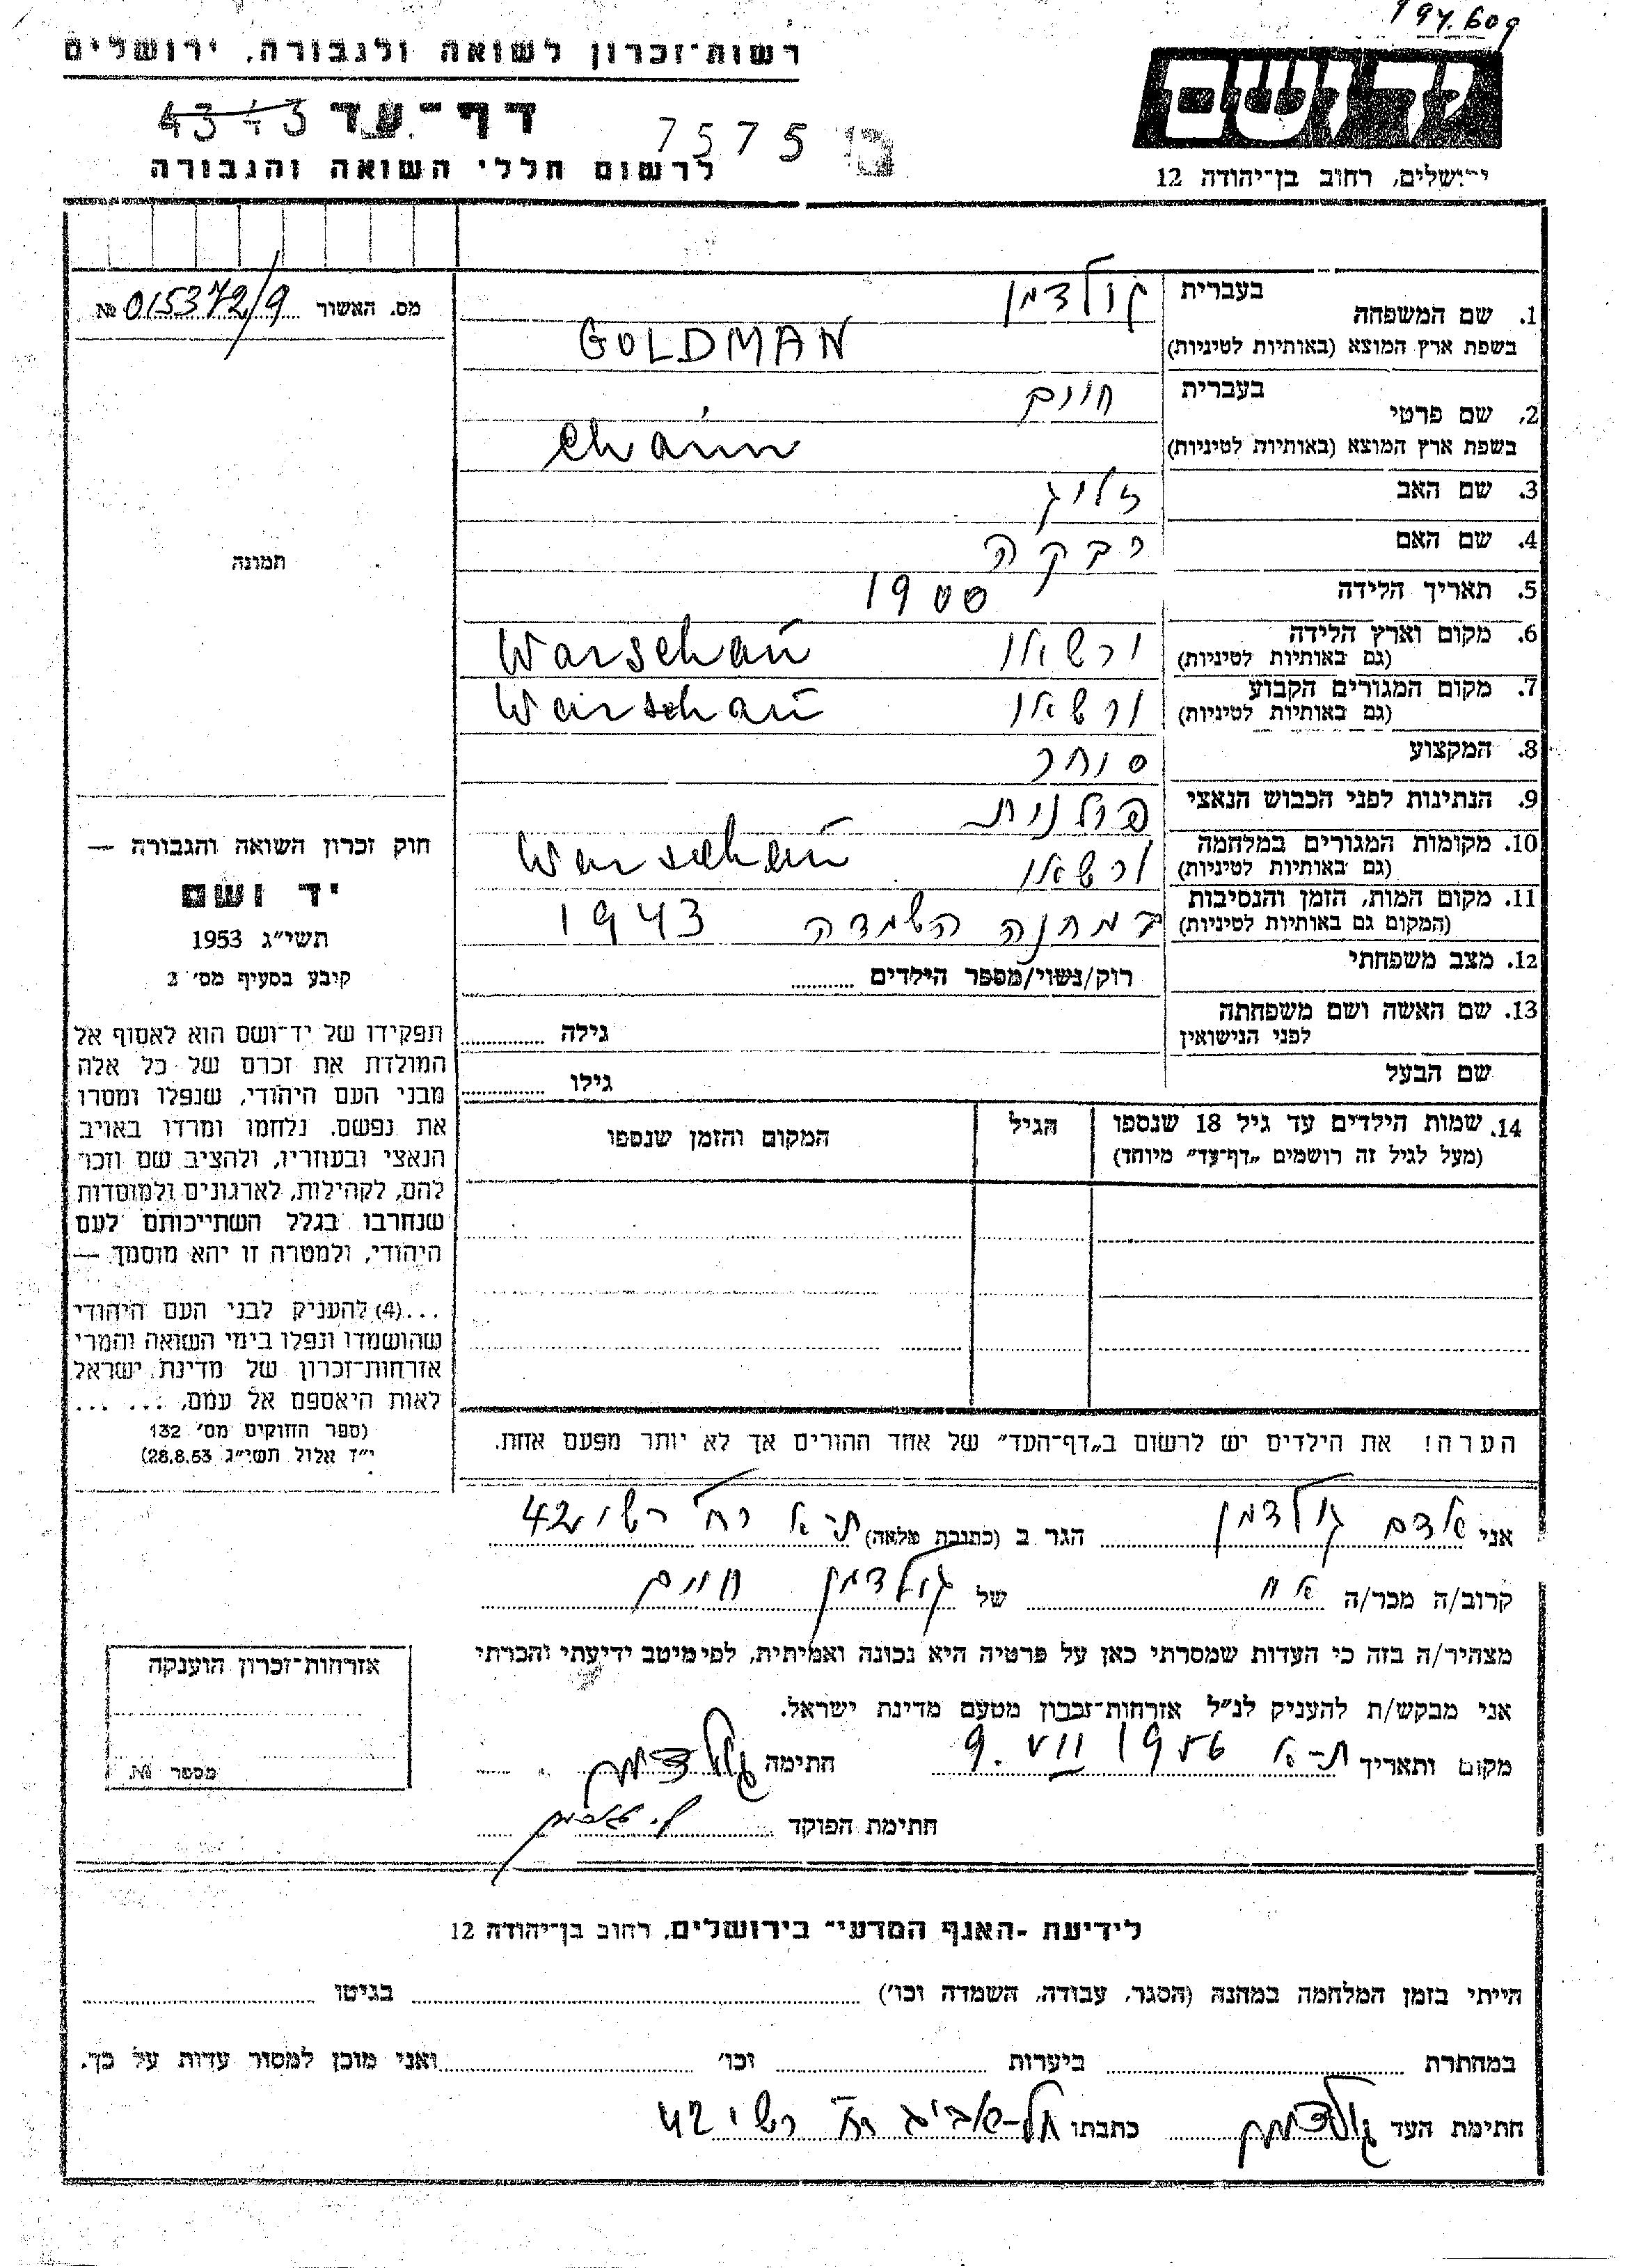 194.609
רשות־זכרון לשואה ולגבורה, ירושלים
ד ושם
דף־עד 4343 7575
לרשום חללי השואה והגבורה
ירושלים, רחוב בן־יהודה 12
מס. האשור 015372/9 №
1. שם המשפחה בעברית גולדמן
בשפת ארץ המוצא (באותיות לטיניות) GOLDMAN
2. שם פרטי בעברית חיים
בשפת ארץ המוצא (באותיות לטיניות) Chaim
3. שם האב זליג
4. שם האם רבקה
תמונה
5. תאריך הלידה 1900
6. מקום וארץ הלידה ורשאו Warschau
(גם באותיות לטיניות)
7. מקום המגורים הקבוע ורשאו Warschau
(גם באותיות לטיניות)
8. המקצוע סוחר
9. הנתינות לפני הכבוש הנאצי פולנית
10. מקומות המגורים במלחמה ורשאו Warschau
(גם באותיות לטיניות)
11. מקום המות, הזמן והנסיבות במחנה השמדה 1943
(המקום גם באותיות לטיניות)
12. מצב משפחתי רוק/נשוי/מספר הילדים
13. שם האשה ושם משפחתה גילה
לפני הנישואין
שם הבעל גילו
14. שמות הילדים עד גיל 18 שנספו הגיל המקום והזמן שנספו
(מעל לגיל זה רושמים „דף־עד” מיוחד)
חוק זכרון השואה והגבורה —
יד ושם
תשי״ג 1953
קובע בסעיף מס׳ 2
תפקידו של יד־ושם הוא לאסוף אל
המולדת את זכרם של כל אלה
מבני העם היהודי, שנפלו ומסרו
את נפשם, נלחמו ומרדו באויב
הנאצי ובעוזריו, ולהציב שם וזכר
להם, לקהילות, לארגונים ולמוסדות
שנחרבו בגלל השתייכותם לעם
היהודי, ולמטרה זו יהא מוסמך —
...(4) להעניק לבני העם היהודי
שהושמדו ונפלו בימי השואה והמרי
אזרחות־זכרון של מדינת ישראל
לאות היאספם אל עמם, ... ...
(ספר החוקים מס׳ 132
י״ז אלול תשי״ג 28.8.53)
הערה! את הילדים יש לרשום ב„דף־העד” של אחד ההורים אך לא יותר מפעם אחת.
אני אדם גולדמן הגר ב (כתובת מלאה) ת-א רח׳ רשי 42
קרוב/ה מכר/ה אח של גולדמן חיים
מצהיר/ה בזה כי העדות שמסרתי כאן על פרטיה היא נכונה ואמיתית, לפי מיטב ידיעתי והכרתי
אני מבקש/ת להעניק לנ״ל אזרחות־זכרון מטעם מדינת ישראל.
מקום ותאריך ת-א 9. VII 1956 חתימה גולדמן
חתימת הפוקד
אזרחות־זכרון הוענקה
מספר №
לידיעת -האגף המדעי־ בירושלים, רחוב בן־יהודה 12
הייתי בזמן המלחמה במחנה (הסגר, עבודה, השמדה וכו׳) בגיטו
במחתרת ביערות וכו׳ ואני מוכן למסור עדות על כך.
חתימת העד גולדמן כתבתו תל-אביב רח׳ רשי 42